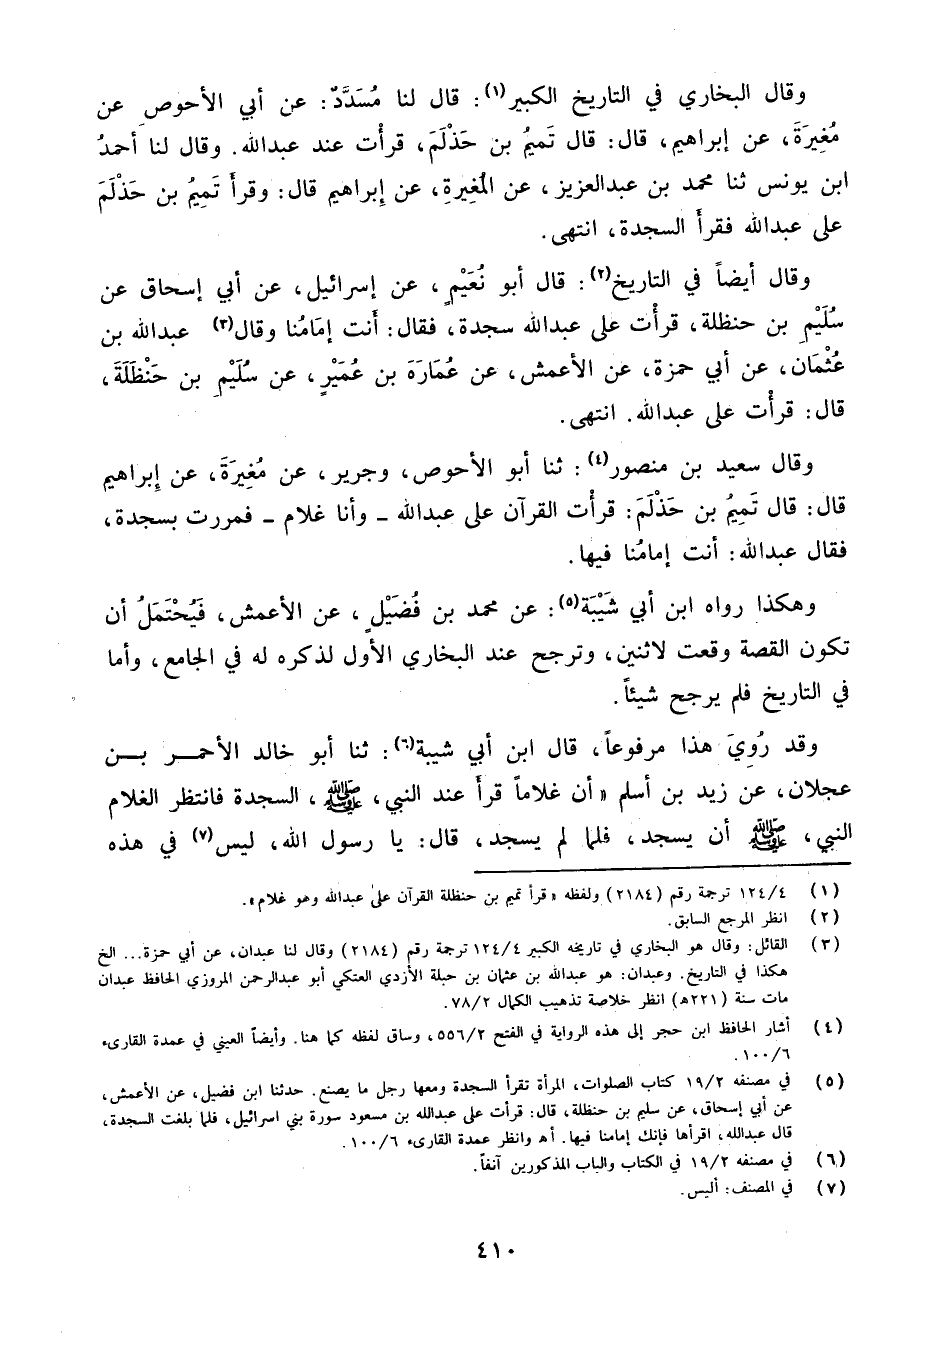 وقال البخاري في التاريخ الكبير(١): قال لنا مُسَدَّدٌ: عن أبي الأحوص عن
مُغِيرَةَ، عن إبراهيم، قال: قال تَميمُ بن حَذْلَمَ، قرأْت عند عبدالله. وقال لنا أحمدُ
ابن يونس ثنا محمد بن عبدالعزيز، عن المُغيرةِ، عن إبراهيم قال: وقرأَ تَمِيمُ بن حَذْلَمَ
على عبدالله فقرأَ السجدة، انتهى.
وقال أيضاً في التاريخ(٢): قال أبو نُعَيْمٍ، عن إسرائيل، عن أبي إسحاق عن
سُلَيْمِ بن حنظلة، قرأْت على عبدالله سجدة، فقال: أَنت إمَامُنا وقال(٣) عبدالله بن
عُثْمَان، عن أبي حمزة، عن الأعمش، عن عُمَارَهَ بن عُمَيْرٍ، عن سُلَيْمِ بن حَنْظَلَةَ،
قال: قرأْت على عبدالله. انتهى.
وقال سعيد بن منصور(٤): ثنا أبو الأحوص، وجرير، عن مُغِيرَةَ، عن إبراهيم
قال: قال تَمِيمُ بن حَذْلَمَ: قرأْت القرآن على عبدالله ـ وأنا غلام ـ فمررت بسجدة،
فقال عبدالله: أنت إمامُنا فيها.
وهكذا رواه ابن أبي شَيْبَة(٥): عن محمد بن فُضَيْلٍ، عن الأعمش، فَيُحْتَمَلُ أن
تكون القصة وقعت لاثنين، وترجح عند البخاري الأول لذكره له في الجامع، وأما
في التاريخ فلم يرجح شيئاً.
وقد رُوِيَ هذا مرفوعاً، قال ابن أبي شيبة(٦): ثنا أبو خالد الأحمـــر بـــن
عجلان، عن زيد بن أسلم «أن غلاماً قرأَ عند النبي، ﷺ، السجدة فانتظر الغلام
النبي، ﷺ أن يسجد، فلما لم يسجد، قال: يا رسول الله، ليس(٧) في هذه
(١) ١٢٤/٤ ترجمة رقم (٢١٨٤) ولفظه «قرأ تميم بن حنظلة القرآن على عبدالله وهو غلام».
(٢) انظر المرجع السابق.
(٣) القائل: وقال هو البخاري في تاريخه الكبير ١٢٤/٤ ترجمة رقم (٢١٨٤) وقال لنا عبدان، عن أبي حمزة... الخ
هكذا في التاريخ. وعبدان: هو عبدالله بن عثمان بن جبلة الأزدي العتكي أبو عبدالرحمن المروزي الحافظ عبدان
مات سنة (٢٢١هـ) انظر خلاصة تذهيب الكمال ٧٨/٢.
(٤) أشار الحافظ ابن حجر إلى هذه الرواية في الفتح ٥٥٦/٢، وساق لفظه كما هنا. وأيضاً العيني في عمدة القارىء
١٠٠/٦.
(٥) في مصنفه ١٩/٢ كتاب الصلوات، المرأة تقرأ السجدة ومعها رجل ما يصنع. حدثنا ابن فضيل، عن الأعمش،
عن أبي إسحاق، عن سليم بن حنظلة، قال: قرأت على عبدالله بن مسعود سورة بني اسرائيل، فلما بلغت السجدة،
قال عبدالله، اقرأها فإنك إمامنا فيها. أهـ وانظر عمدة القارىء ١٠٠/٦.
(٦) في مصنفه ١٩/٢ في الكتاب والباب المذكورين آنفاً.
(٧) في المصنف: أليس.
٤١٠